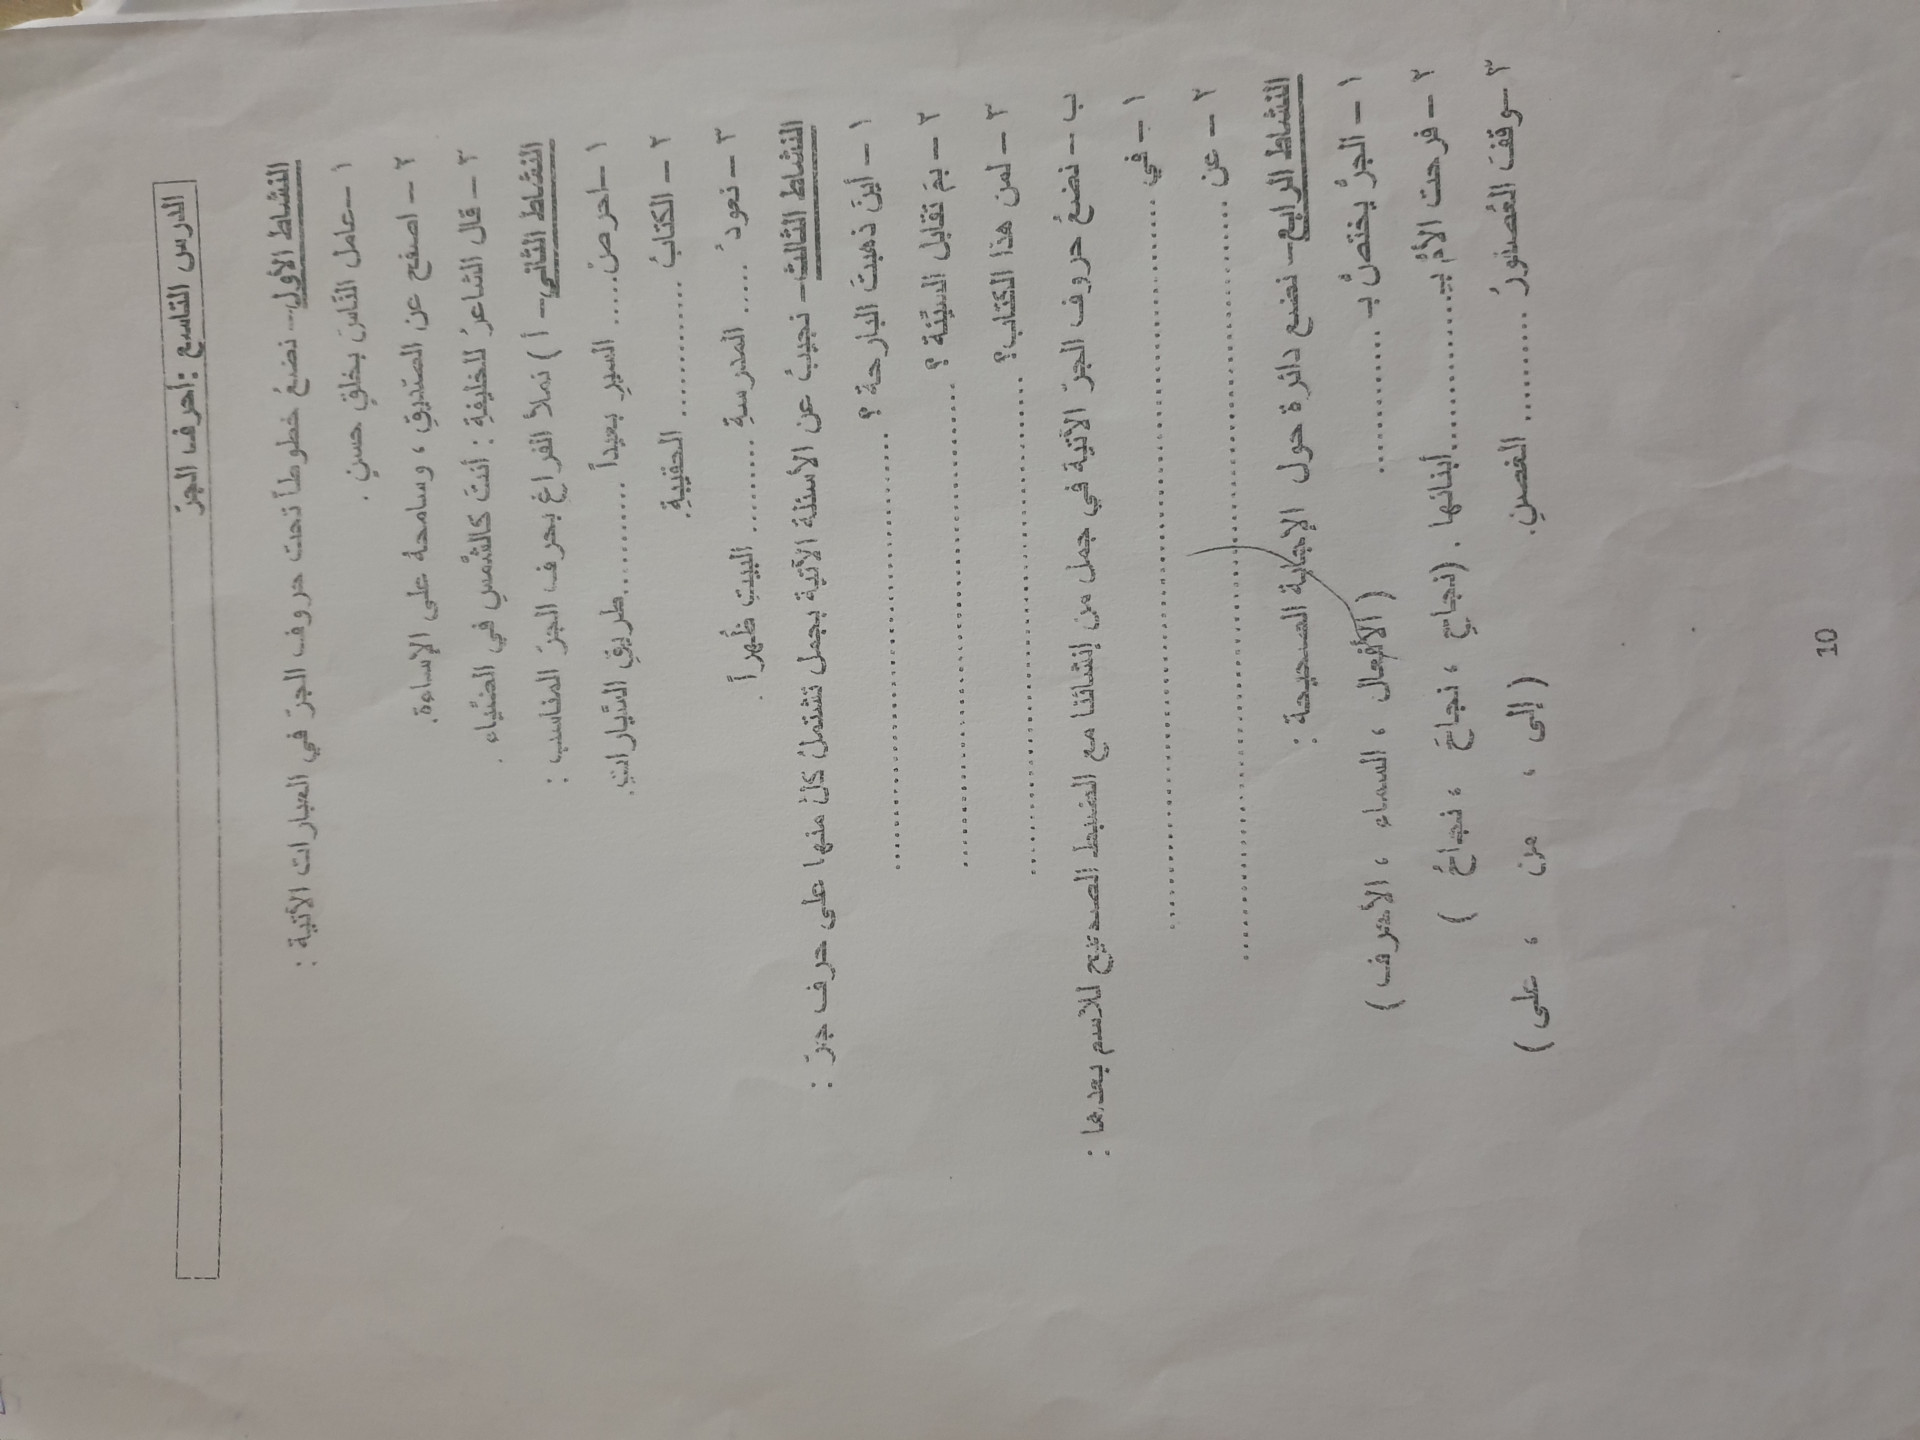 الدرس التاسع : أحرف الجرّ
النشاط الأول– نضعُ خطوطاً تحت حروف الجرّ في العبارات الآتية :
١ –عامل النّاسَ بخلقٍ حسنٍ .
٢ – اصفح عن الصّديقِ ، وسامحهُ على الإساءة.
٣ – قال الشاعرُ للخليفةِ : أنتَ كالشّمسِ في الضيّاءِ .
النشاط الثاني– أ ) نملأ الفراغَ بحرف الجرّ المناسب :
١ –احرصْ ..... السيرِ بعيداً ...........طريقِ السّياراتِ.
٢ – الكتابُ ........... الحقيبةِ.
٣ – نعودُ ..... المدرسةِ ......... البيتِ ظهراً .
النشاط الثالث– نجيبُ عن الأسئلة الآتية بجمل تشتملُ كلٌّ منها على حرف جرّ :
١ – أينَ ذهبتَ البارحة ؟ ................................................
٢ – بمَ تقابل السيّئة ؟ ................................................
٣ – لمن هذا الكتاب؟ ................................................
ب – نضعُ حروف الجرّ الآتية في جمل من إنشائنا مع الضبط الصحيح للاسم بعدها :
١ – في ................................................
٢ – عن ................................................
النشاط الرابع– نضع دائرة حول الإجابة الصحيحة :
١ – الجرُّ يختصُّ بـ .......... ( الأفعال ، السماء ، الأحرف )
٢ – فرحت الأمُّ بـ...........أبنائها . (نجاحِ ، نجاحَ ، نجاحُ )
٣ –وقفَ العُصفورُ ........ الغصنِ. (إلى ، من ، على )
10